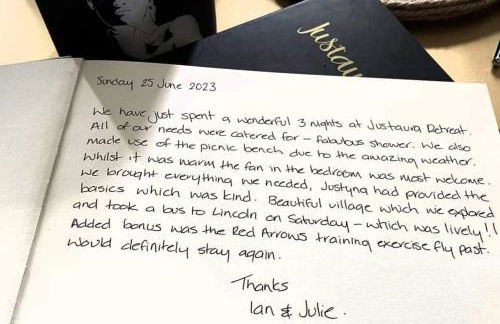 Justaura
Sunday 25 June 2023
We have just spent a wonderful 3 nights at Justaura Retreat.
All of our needs were catered for - fabulous shower. We also
made use of the picnic bench due to the amazing weather.
Whilst it was warm the fan in the bedroom was most welcome.
We brought everything we needed, Justyna had provided the
basics which was kind. Beautiful village which we explored
and took a bus to Lincoln on Saturday - which was lively!!
Added bonus was the Red Arrows training exercise fly past.
Would definitely stay again.
Thanks
Ian & Julie.